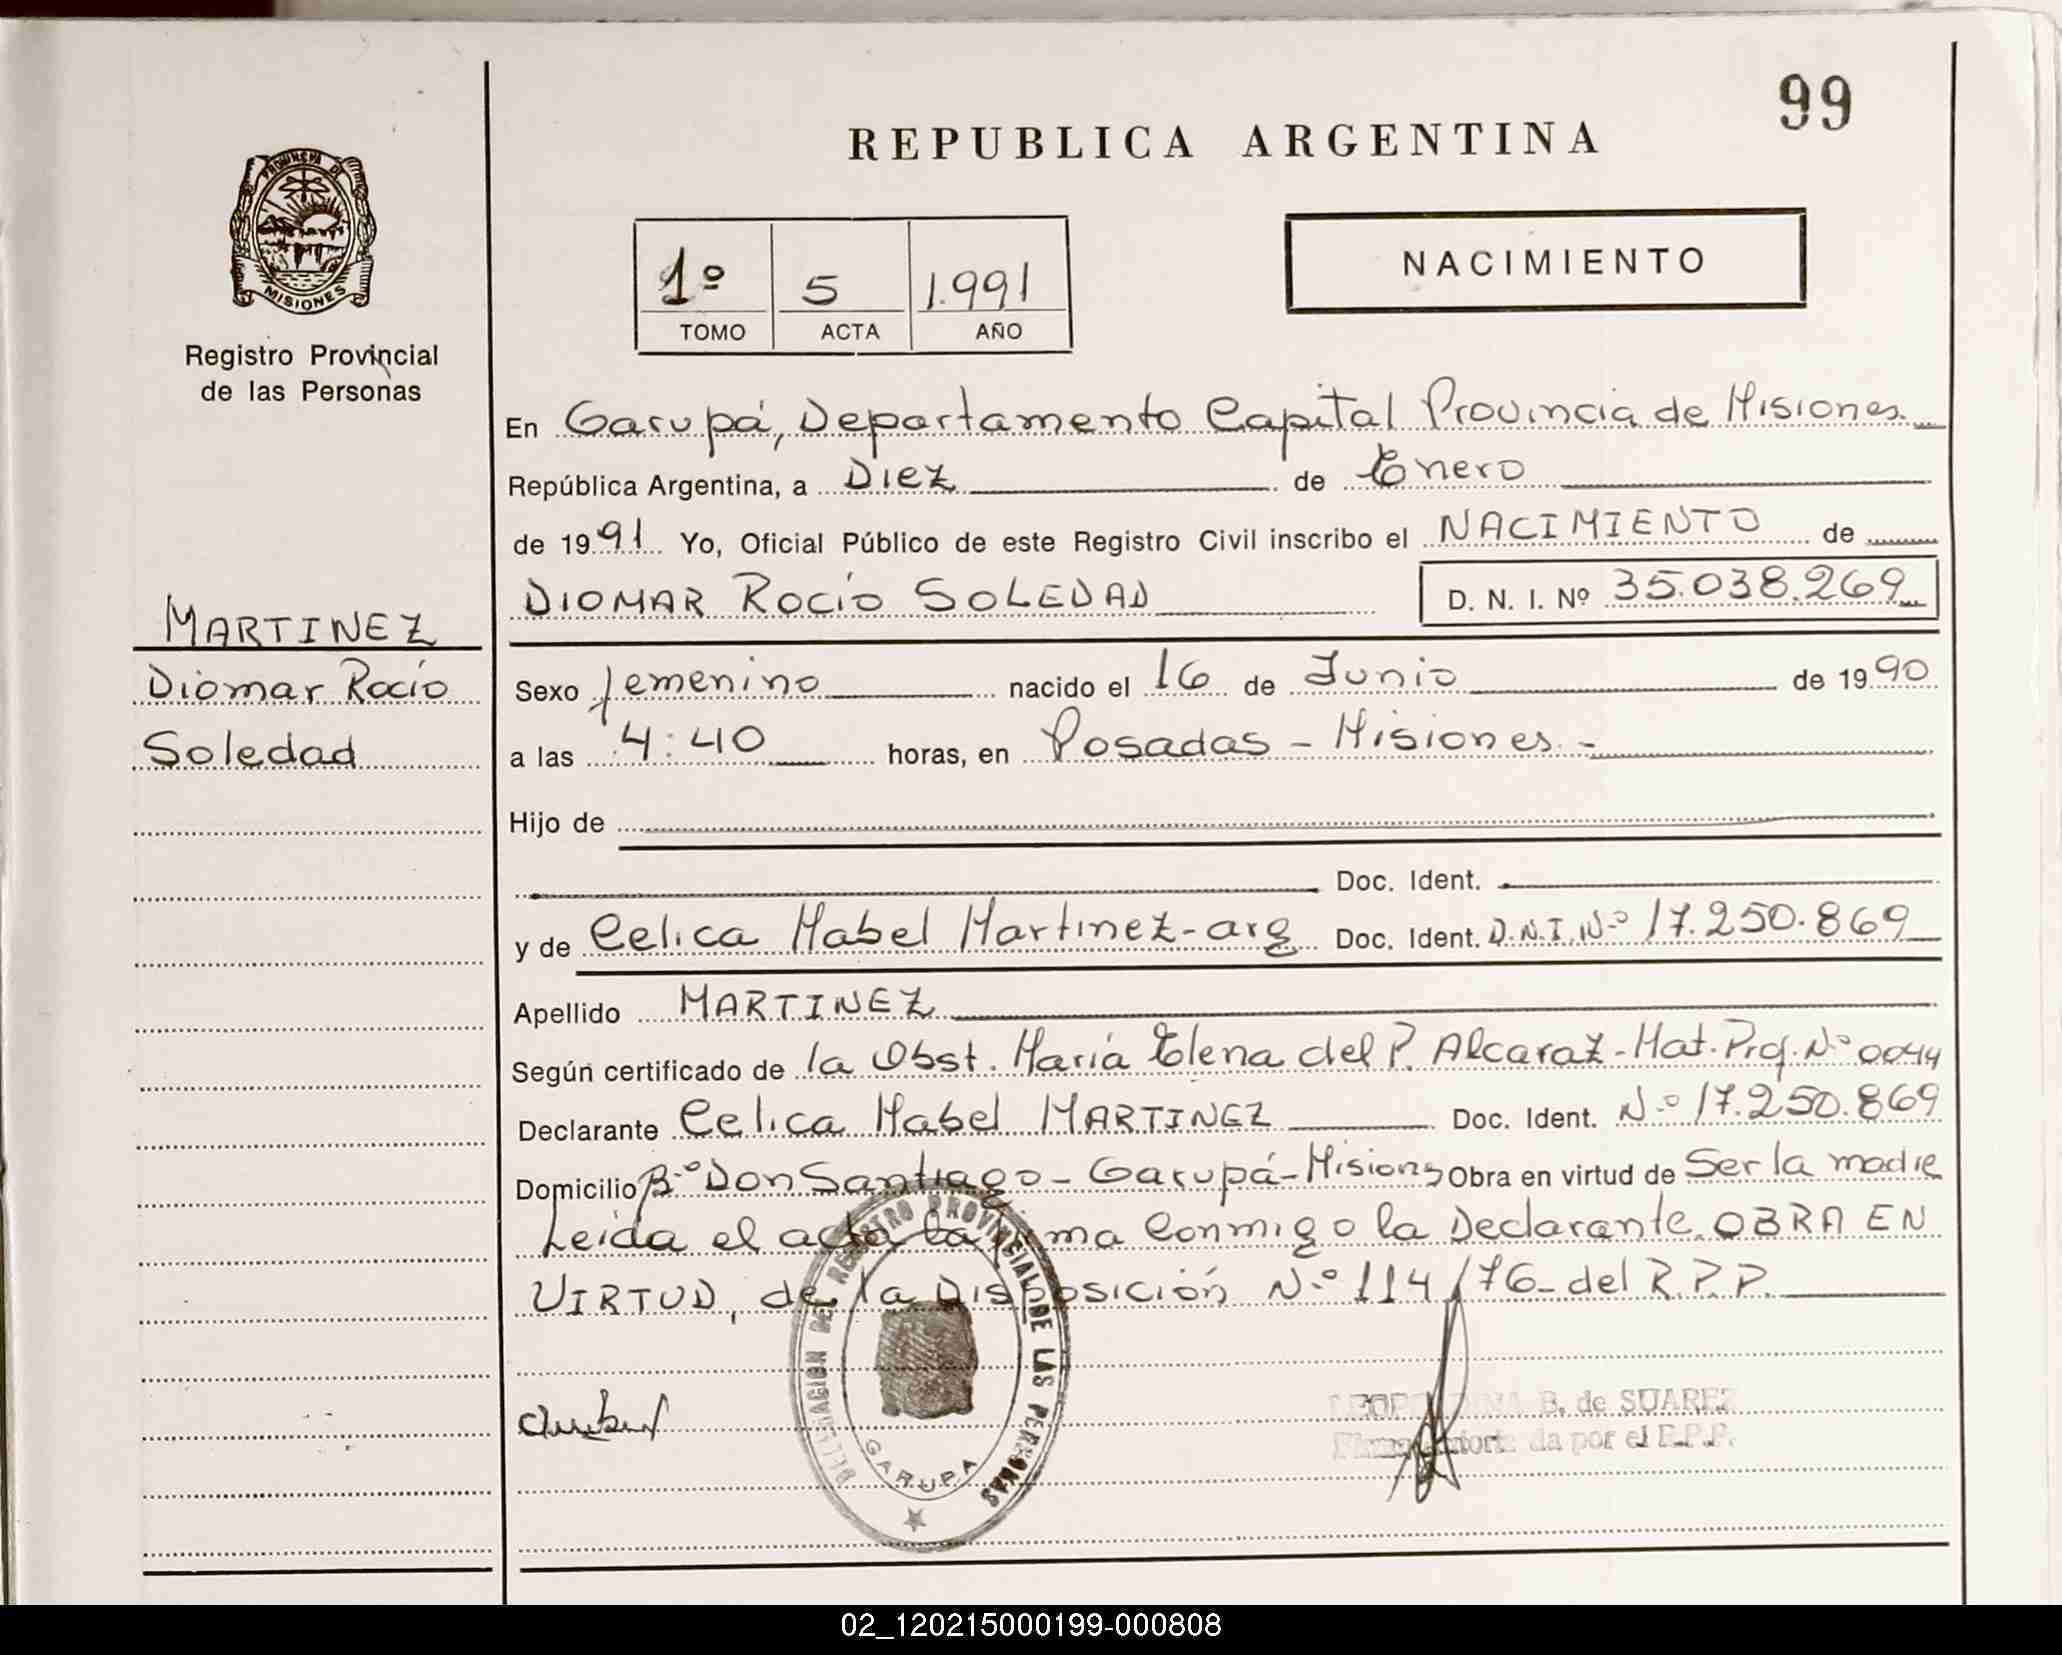 99
REPUBLICA ARGENTINA
PROVINCIA DE MISIONES
Registro Provincial
de las Personas
NACIMIENTO
1º 5 1.991
TOMO ACTA AÑO
En Garupá, Departamento Capital Provincia de Misiones.
República Argentina, a Diez de Enero
de 1991 Yo, Oficial Público de este Registro Civil inscribo el NACIMIENTO de
DIOMAR ROCÍO SOLEDAD D. N. I. Nº 35.038.269
MARTINEZ
Diomar Rocío
Soledad
Sexo femenino nacido el 16 de Junio de 1990
a las 4:40 horas, en Posadas - Misiones. -
Hijo de
Doc. Ident.
y de Celica Mabel Martinez - arg. Doc. Ident. D.N.I. Nº 17.250.869
Apellido MARTINEZ
Según certificado de la Obst. María Elena del P. Alcaraz - Mat. Prof. Nº 0044
Declarante Celica Mabel MARTINEZ Doc. Ident. Nº 17.250.869
Domicilio Bº Don Santiago - Garupá - Misiones Obra en virtud de Ser la madre
Leida el acta la firma conmigo la Declarante. OBRA EN
VIRTUD, de la Disposición Nº 114/76 - del R.P.P.
DELEGACION DEL REGISTRO PROVINCIAL DE LAS PERSONAS
GARUPA
B. de SUAREZ
da por el R.P.P.
02_120215000199-000808